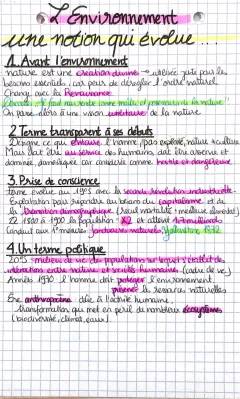 L'Environnement
une notion qui évolue...
1. Avant l'environnement
nature est une création divine → utilisée juste pour les
besoins essentiels, car peur de dérégler l'ordre naturel
Change avec la Renaissance
se rendre comme maître et possesseur de la nature
On passe alors à une vision utilitaire de la nature.
2. Terme transparent à ses débuts
Désigne ce qui entoure l'homme, pas exploité, nature ≠ culture
Mais doit être au service des humains, doit être asservie et
dominée, domestiquée car considérée comme hostile et dangereuse
3. Prise de conscience
terme évolue au 19eS avec la seconde révolution industrielle
Exploitation pour répondre au besoin du capitalisme et de
la transition démographique (recul mortalité + meilleure alimentat°)
1800 à 1900 la population x2 et atteint
Conduit aux 1ères mesures 1872
4. Un terme politique
2015 milieu de vie des populations sur lequel s'établit des
interactions entre nature et sociétés humaines (cadre de vie)
Années 1970 l'homme doit protéger l'environnement,
préserver les ressources naturelles
Ère anthropocène due à l'activité humaine,
transformation qui met en péril de nombreux écosystèmes
(biodiversité, climat, eaux).